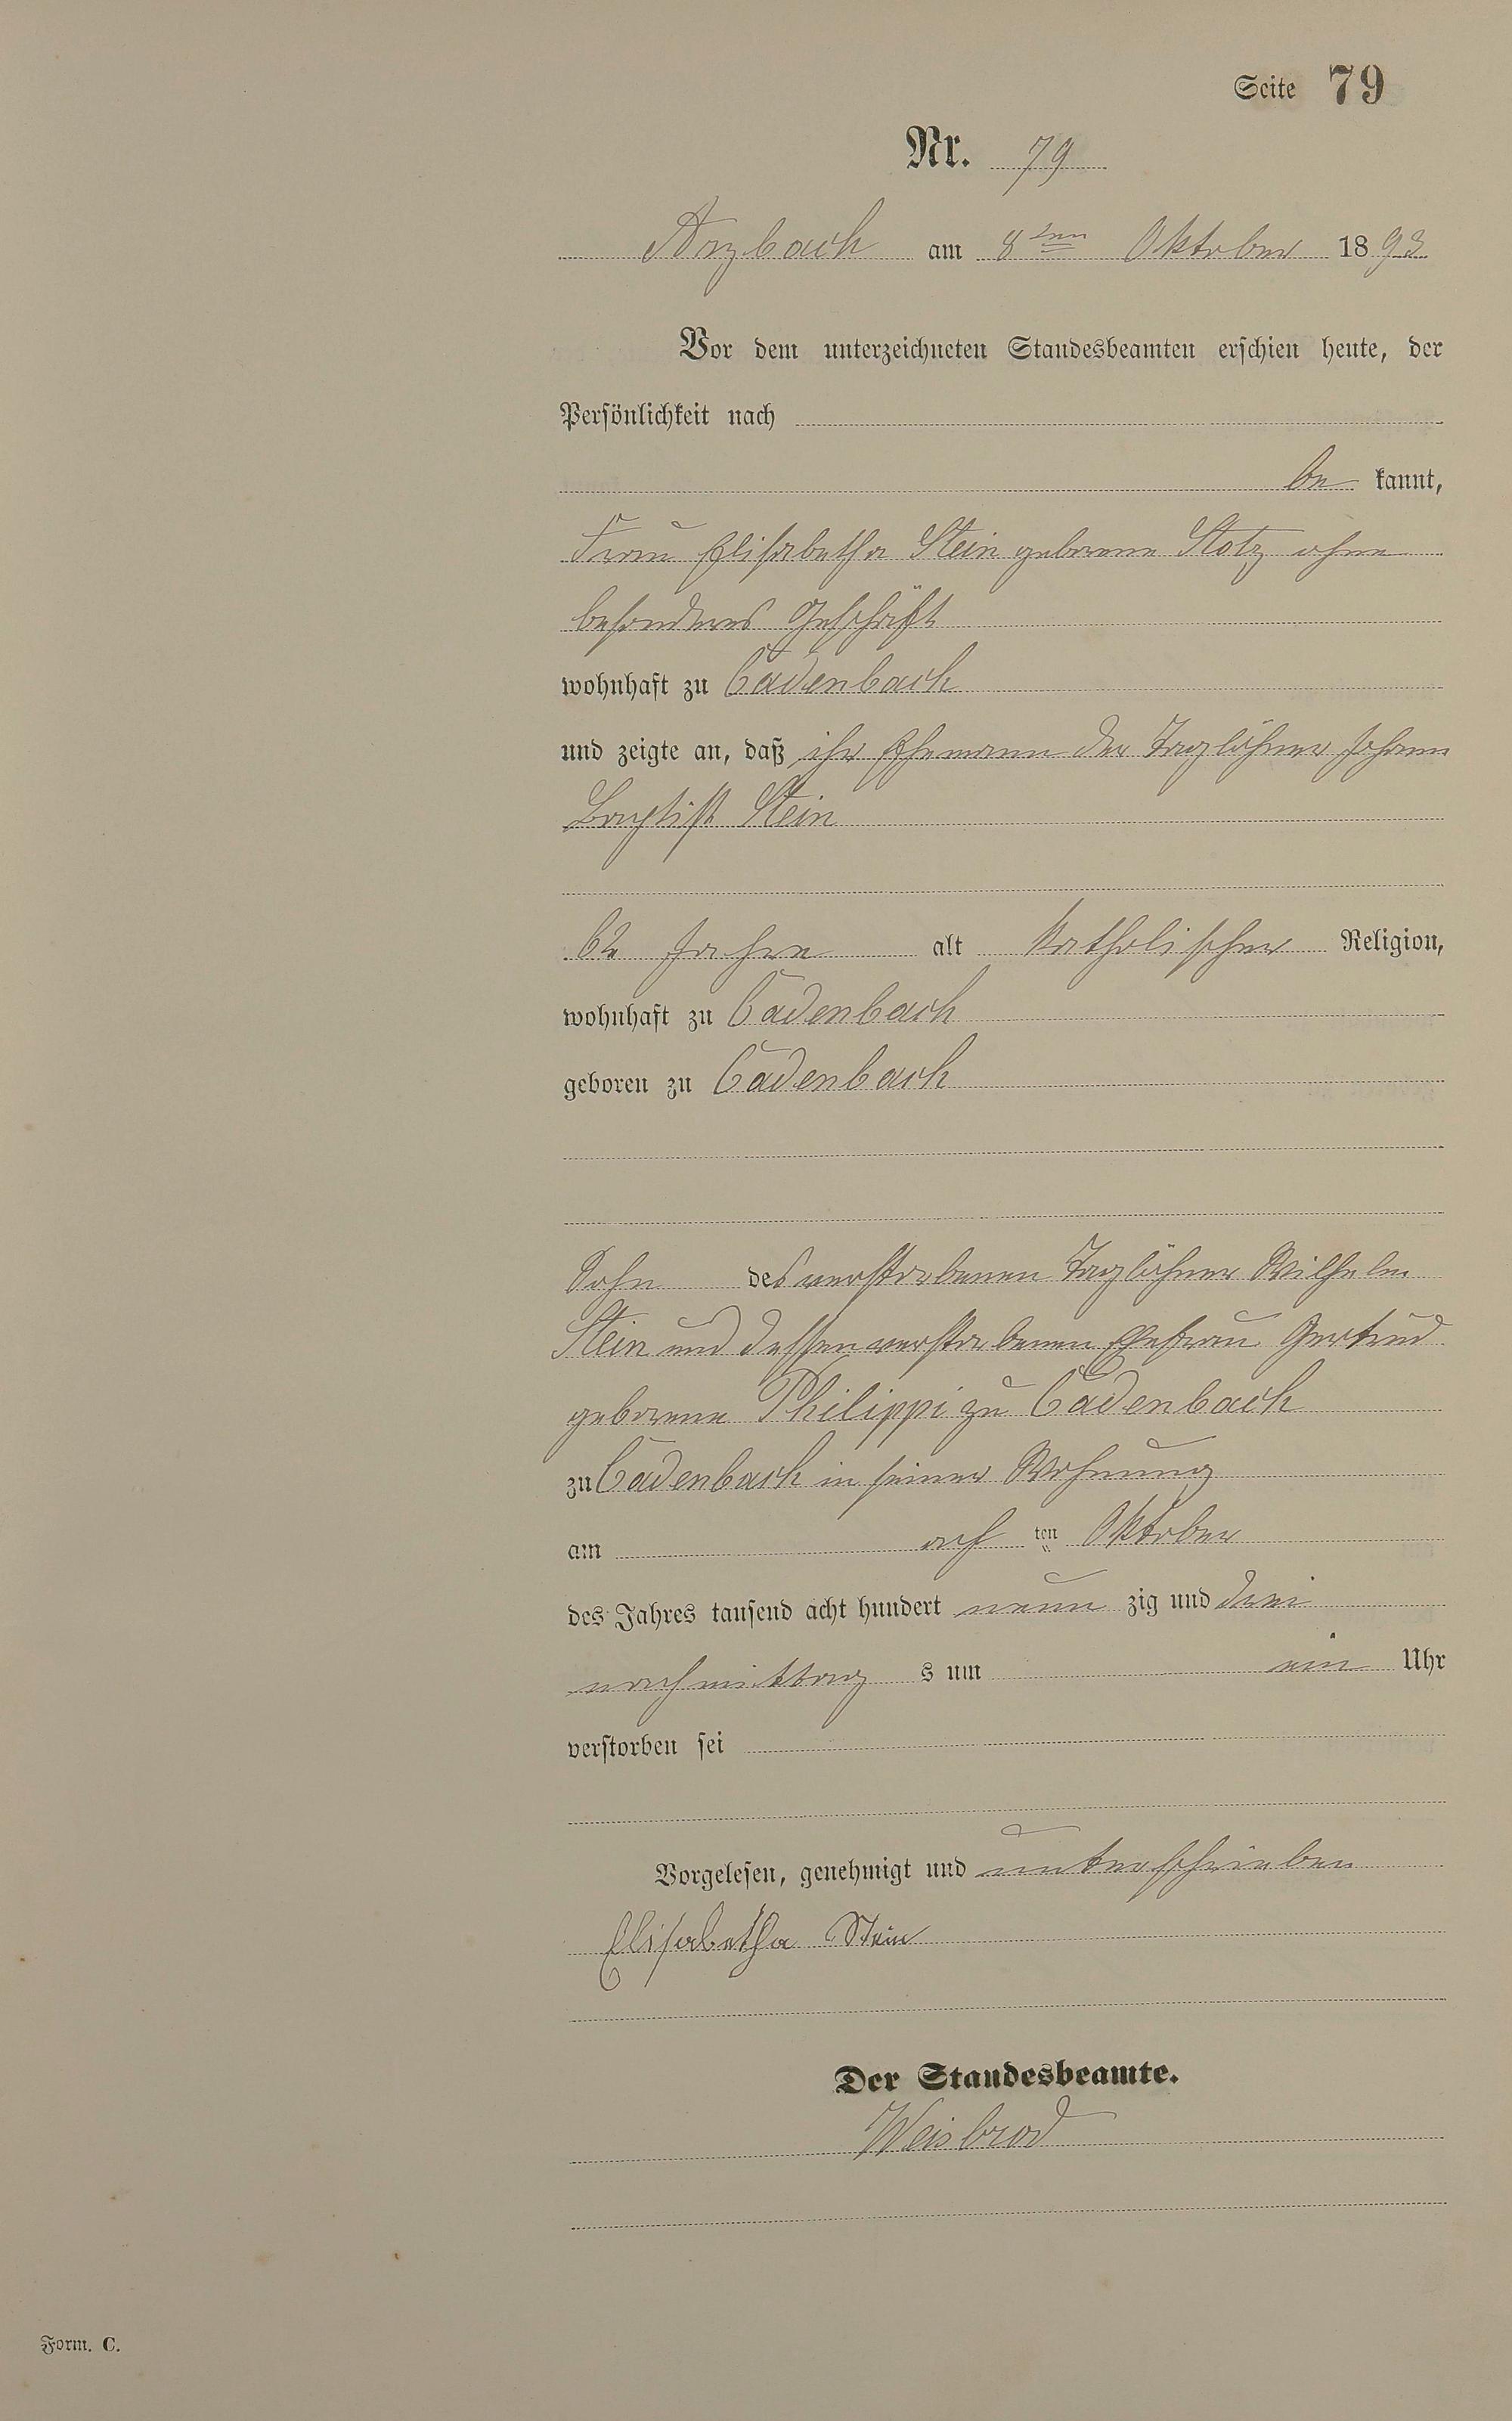 Seite 79
Nr. 79
Arzbach am 8ten Oktober 1893
Vor dem unterzeichneten Standesbeamten erschien heute, der
Persönlichkeit nach
be kannt,
Frau Elisabetha Stein geborene Stotz ohne
besonderes Geschäft
wohnhaft zu Cadenbach
und zeigte an, daß ihr Ehemann der Taglöhner Johann
Baptist Stein
62 Jahre alt katholischer Religion,
wohnhaft zu Cadenbach
geboren zu Cadenbach
Sohn des verstorbenen Taglöhner Wilhelm
Stein und dessen verstorbenen Ehefrau Gertrud
geborene Philippi zu Cadenbach
zu Cadenbach in seiner Wohnung
am ach ten Oktober
des Jahres tausend acht hundert neun zig und drei
nachmittag s um ein Uhr
verstorben sei
Vorgelesen, genehmigt und unterschrieben
Elisabetha Stein
Der Standesbeamte.
Weisbrod
Form. C.